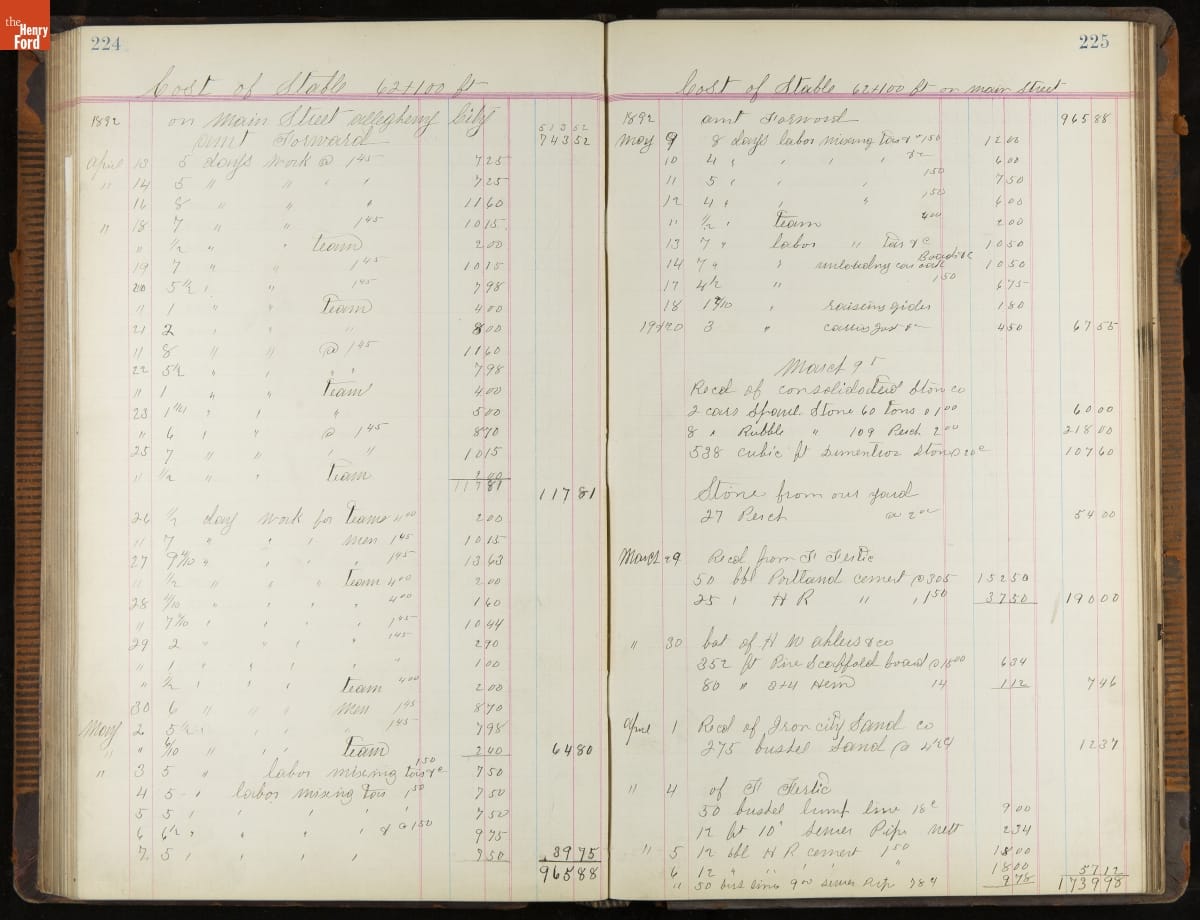 the Henry Ford
224
Cost of Stable 62+100 ft
1892 on Main Street Allegheny City
5 13 52
amt Forward 743 52
April 13 5 days work @ 1 45 7 25
" 14 5 " " " " 7 25
16 8 " " " 11 60
" 18 7 " " 1 45 10 15
" 1/2 " " team 2 00
19 7 " " 1 45 10 15
20 5 1/2 " " 1 45 7 98
" 1 " " team 4 00
21 2 " " " 8 00
" 8 " " @ 1 45 11 60
22 5 1/2 " " " " 7 98
" 1 " " team 4 00
23 " " " 5 00
" 6 " " @ 1 45 8 70
25 7 " " " " 10 15
" 1/2 " " team 2 00
117 81 117 81
26 1/2 day work for team 4 00 2 00
" 7 " " " men 1 45 10 15
27 9 4/10 " " " " 1 45 13 63
" 1/2 " " " team 4 00 2 00
28 4/10 " " " " 4 00 1 60
" 7 2/10 " " " " 1 45 10 44
29 2 " " " " 1 45 2 90
" 1 " " " " " 1 00
" 1/2 " " " team 4 00 2 00
30 6 " " " men 1 45 8 70
May 2 5 1/2 " " " " 1 45 7 98
" " 6/10 " " " team 2 40 64 80
" 3 5 " labor mixing 1 50 7 50
4 5 " labor mixing 1 50 7 50
5 5 " " " " 7 50
6 6 1/2 " " " 1 50 9 75
7 5 " " " " 7 50 39 75
965 88
225
Cost of Stable 62+100 ft on main Street
1892 amt Forword 965 88
May 9 8 days labor mixing 1 50 12 00
10 4 " " " " 6 00
11 5 " " " 1 50 7 50
12 4 " " " 1 50 6 00
" 1/2 " team 4 00 2 00
13 7 " labor " 10 50
14 7 " " unloading car 10 50
17 4 1/2 " " 1 50 6 75
18 1 2/10 " raising gider 1 80
19+20 3 " 4 50 67 55
March 9
Recd of consolidated Ston co
2 cars Stone 60 tons @ 1 00 60 00
8 " Rubble " 109 Perch 2 00 218 00
538 cubic ft Dimention Ston @ 20 c 107 60
Stone from our yard
27 Perch @ 2 00 54 00
March 29 Recd from F
50 bbl Portland cement @ 3 05 152 50
25 " H R " " 1 50 37 50 190 00
" 30 bot of H W ahlers & co
352 ft Pine Scaffold board @ 18 00 6 34
80 " 2+4 Hem 14 1 12 7 46
April 1 Recd of Iron city Sand co
275 bushel Sand @ 12 37
" 4 of F
50 bushel lump lime 18 c 9 00
12 ft 10" Sewer Pipe nett 2 34
" 5 12 bbl H R cement 1 50 18 00
6 12 " " " " 18 00 57 12
" 50 bus lime 9 00 sewer Pip 78 9 78 1739 98